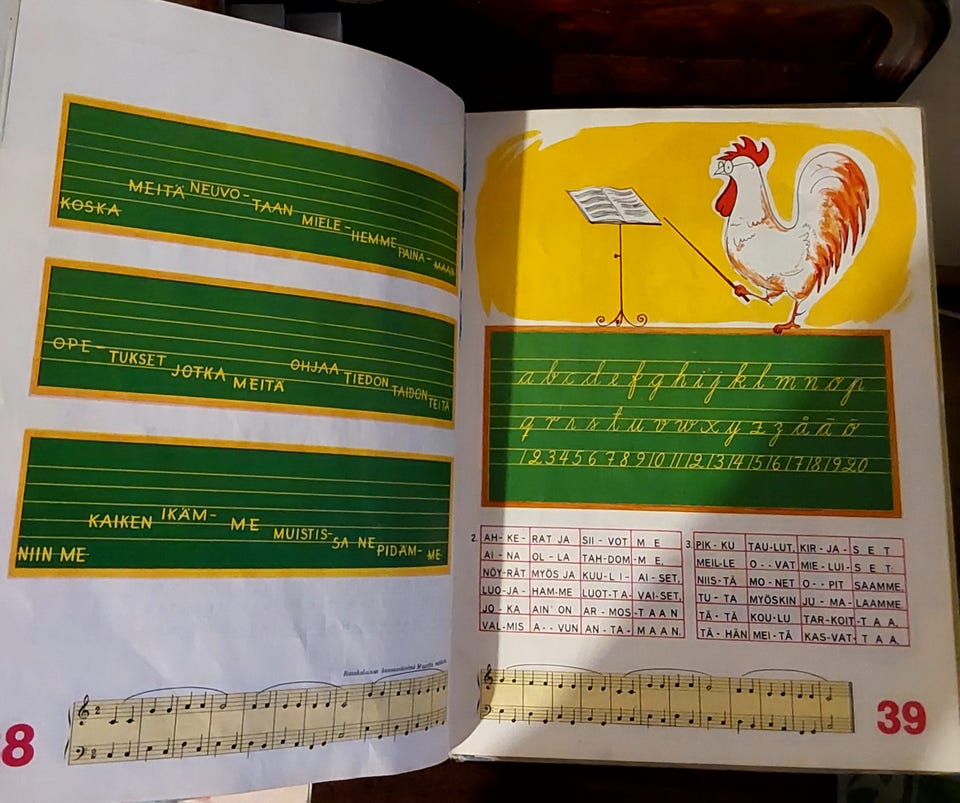 MEITÄ NEUVO-TAAN MIELE-HEMME PAINA-MAAN
KOSKA
OPE-TUKSET JOTKA MEITÄ OHJAA TIEDON TAIDON TEITÄ
KAIKEN IKÄM-ME MUISTIS-SA NE PIDÄM-ME
NIIN ME
38
a b c d e f g h i j k l m n o p
q r s t u v w x y z å ä ö
1 2 3 4 5 6 7 8 9 10 11 12 13 14 15 16 17 18 19 20
2. AH-KE-RAT JA SII-VOT M E
AI-NA OL-LA TAH-DOM-M E,
NÖY-RÄT MYÖS JA KUU-L I-AI-SET,
LUO-JA-HAM-ME LUOT-T A-VAI-SET,
JO-KA AIN' ON AR-MOS-T A A N
VAL-MIS A--VUN AN-TA-M A A N.
3. PIK-KU TAU-LUT, KIR-JA-S E T
MEIL-LE O--VAT MIE-LUI-S E T:
NIIS-TÄ MO-NET O--PIT SAAMME,
TU-TA MYÖSKIN JU-MA-LAAMME.
TÄ-TÄ KOU-LU TAR-KOIT-T A A,
TÄ-HÄN MEI-TÄ KAS-VAT-T A A.
39